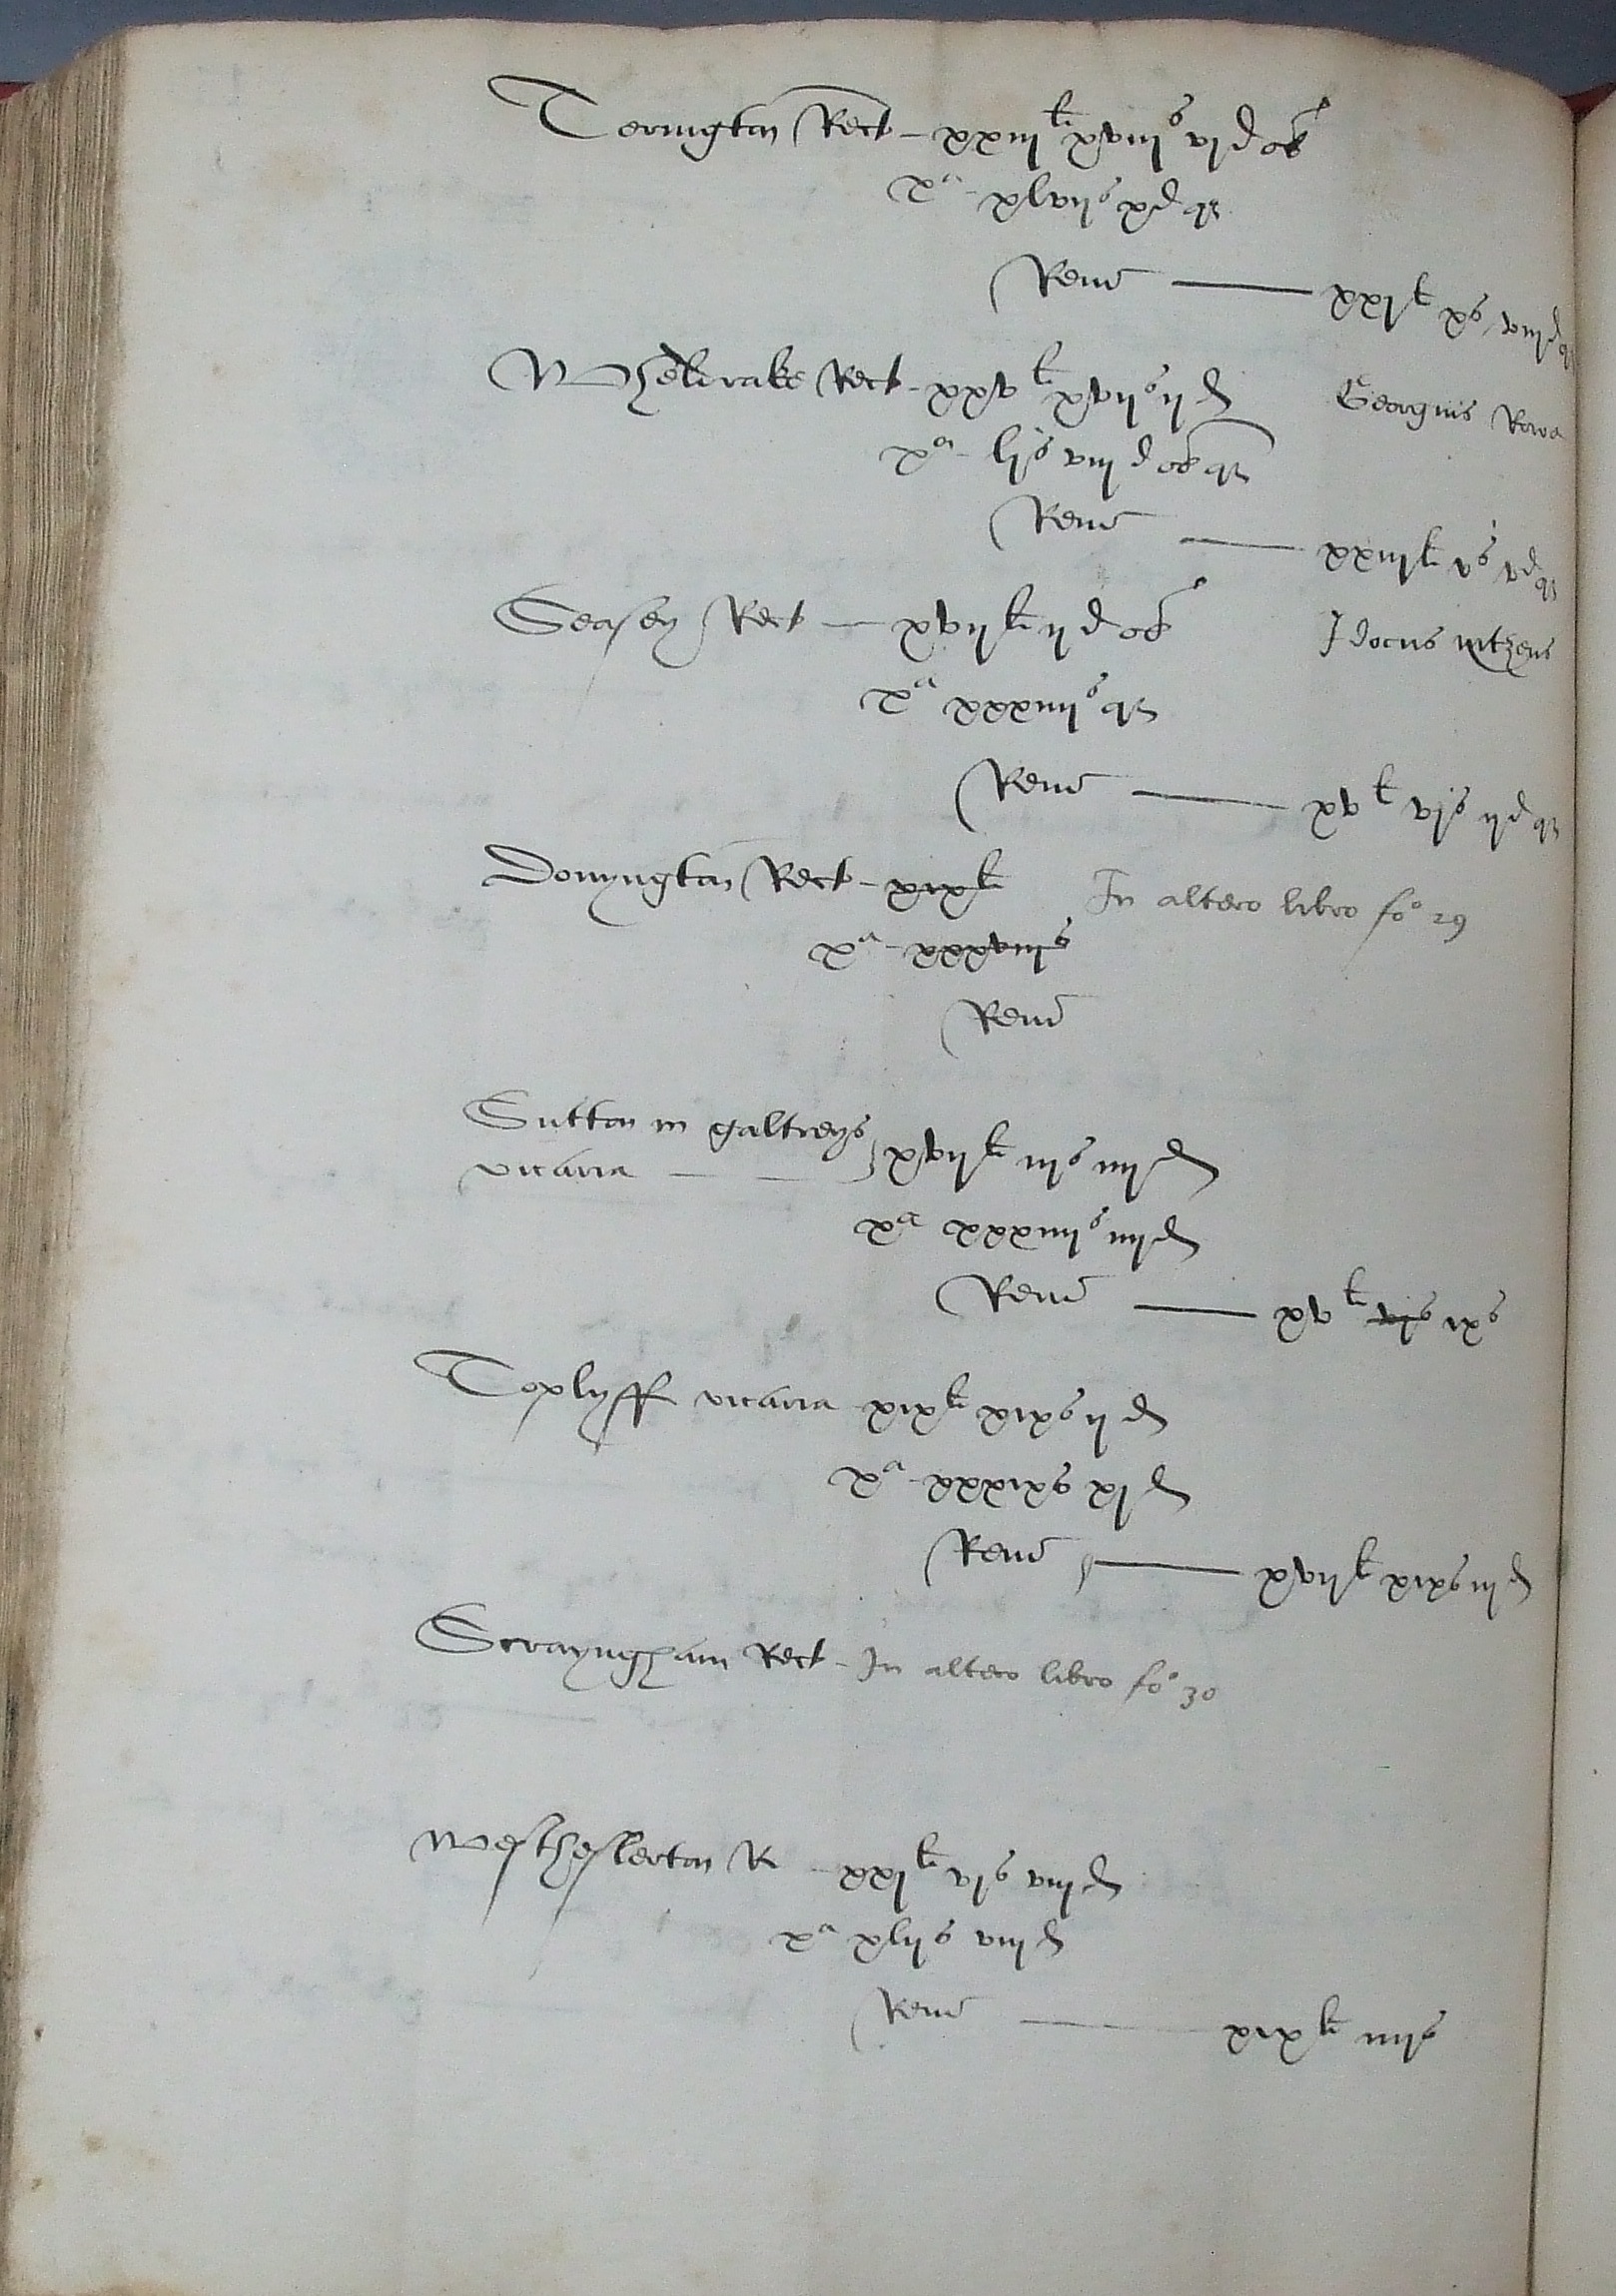 Terington Rect - xxiij li xviij s vj d ob
xa - xlvij s x d qr
Rem — xxj li x s viij d q
Wheldrake Rect - xxv li xvij s ij d Georgius
xa - lj s viij d ob qr
Rem — xxiij li v s v d qr
Seasey Rect — xvij li ij d ob Jdocus
xa xxxiiij s qr
Rem — xv li vj s ij d qr
Donyngton Rect - xix li In altero libro fo 29
xa - xxxviij s
Rem
Sutton in galtreys xvij li iij s iiij d
vicaria — —
xa xxxiiij s iiij d
Rem — xv li vij s ix s
Toplyff vicaria xix li xix s ij d
xa - xxxix s xj d
Rem — xvij li xix s iij d
Scrayngham Rect - In altero libro fo 30
Westheslerton R - xxj li vj s viij d
xa xlij s viij d
Rem — xix li iiij s